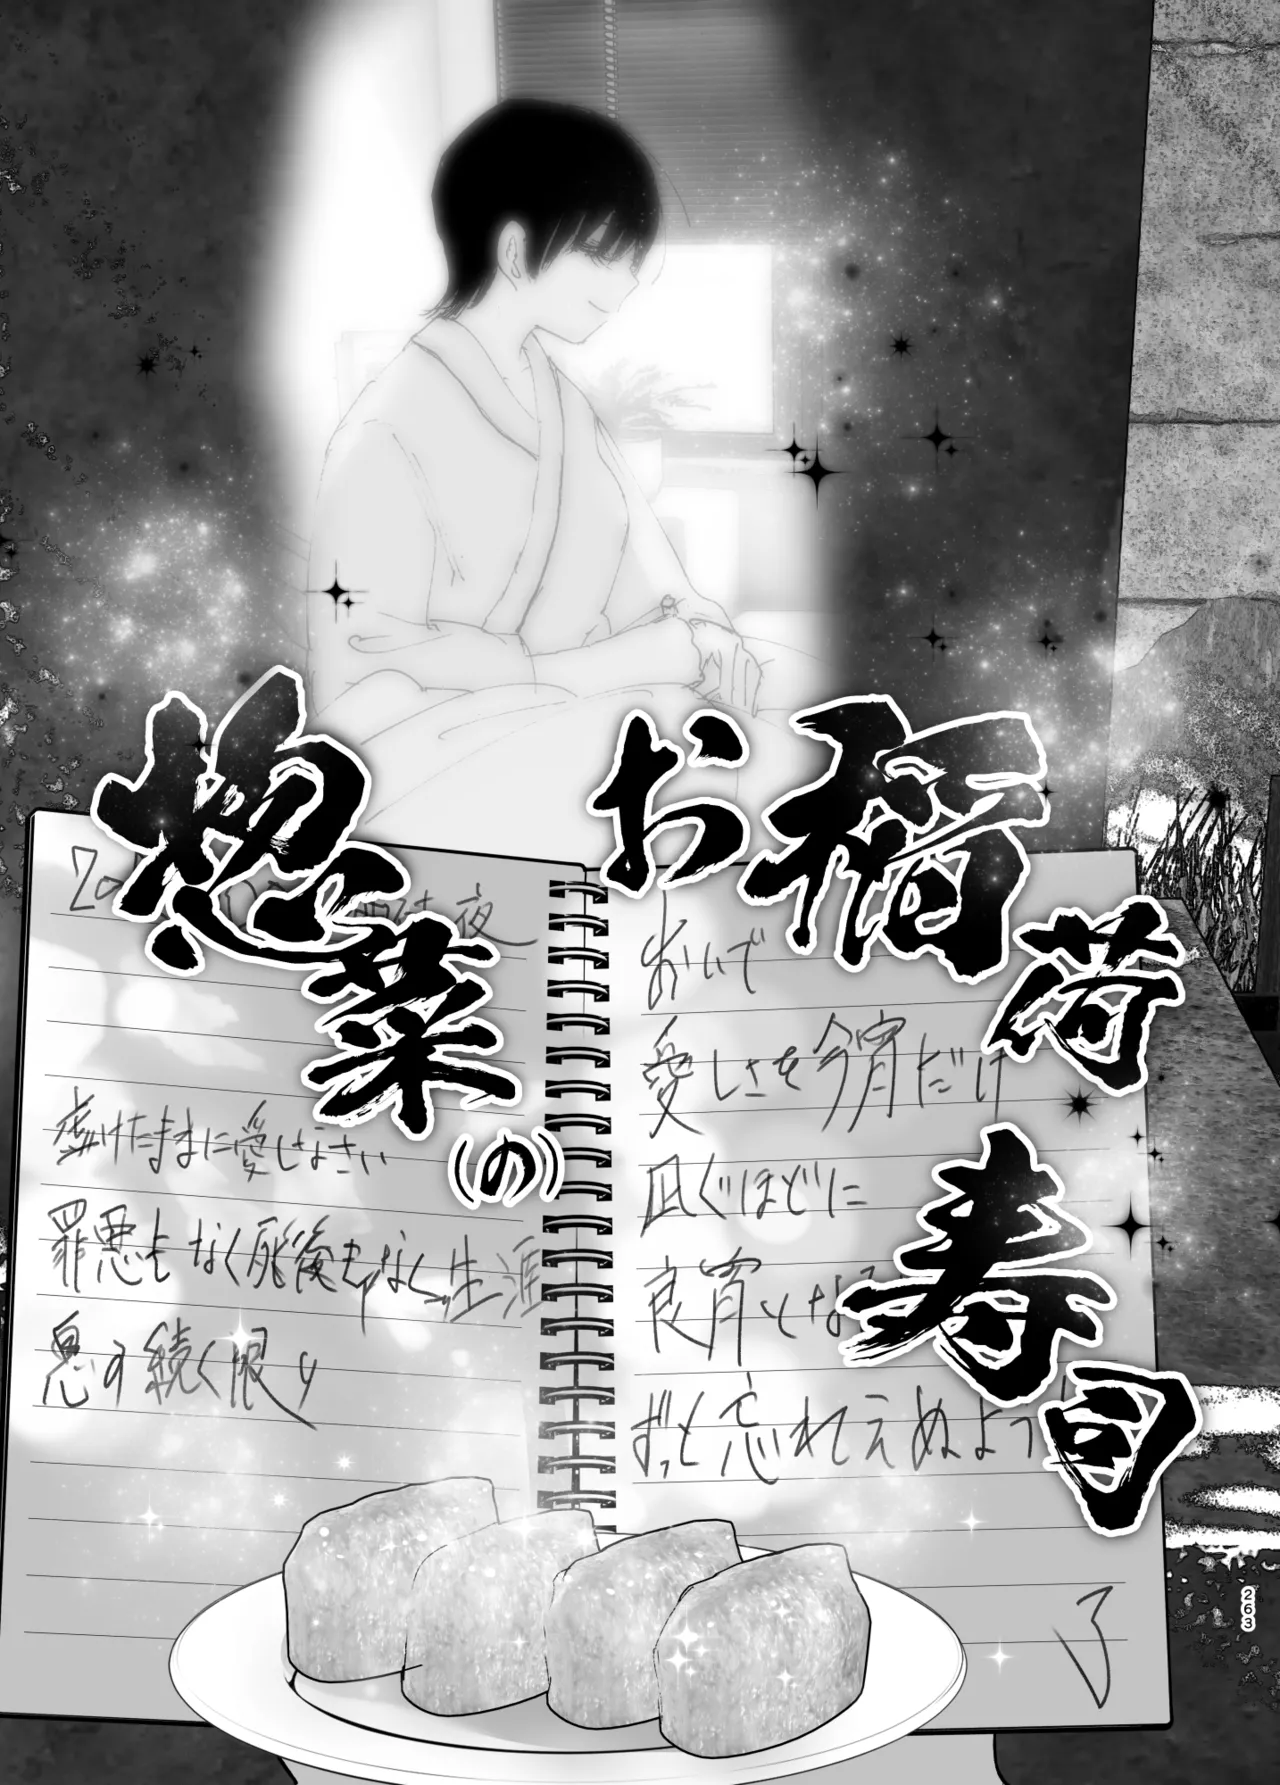 お稲荷
寿司
惣菜の
(の)
夜
虚けたままに愛しなさい
罪悪もなく死後もなく生涯
息の続く限り
おいで
愛しさを今宵だけ
凪ぐほどに
良宵とな
ずっと忘れえぬよう
了
263